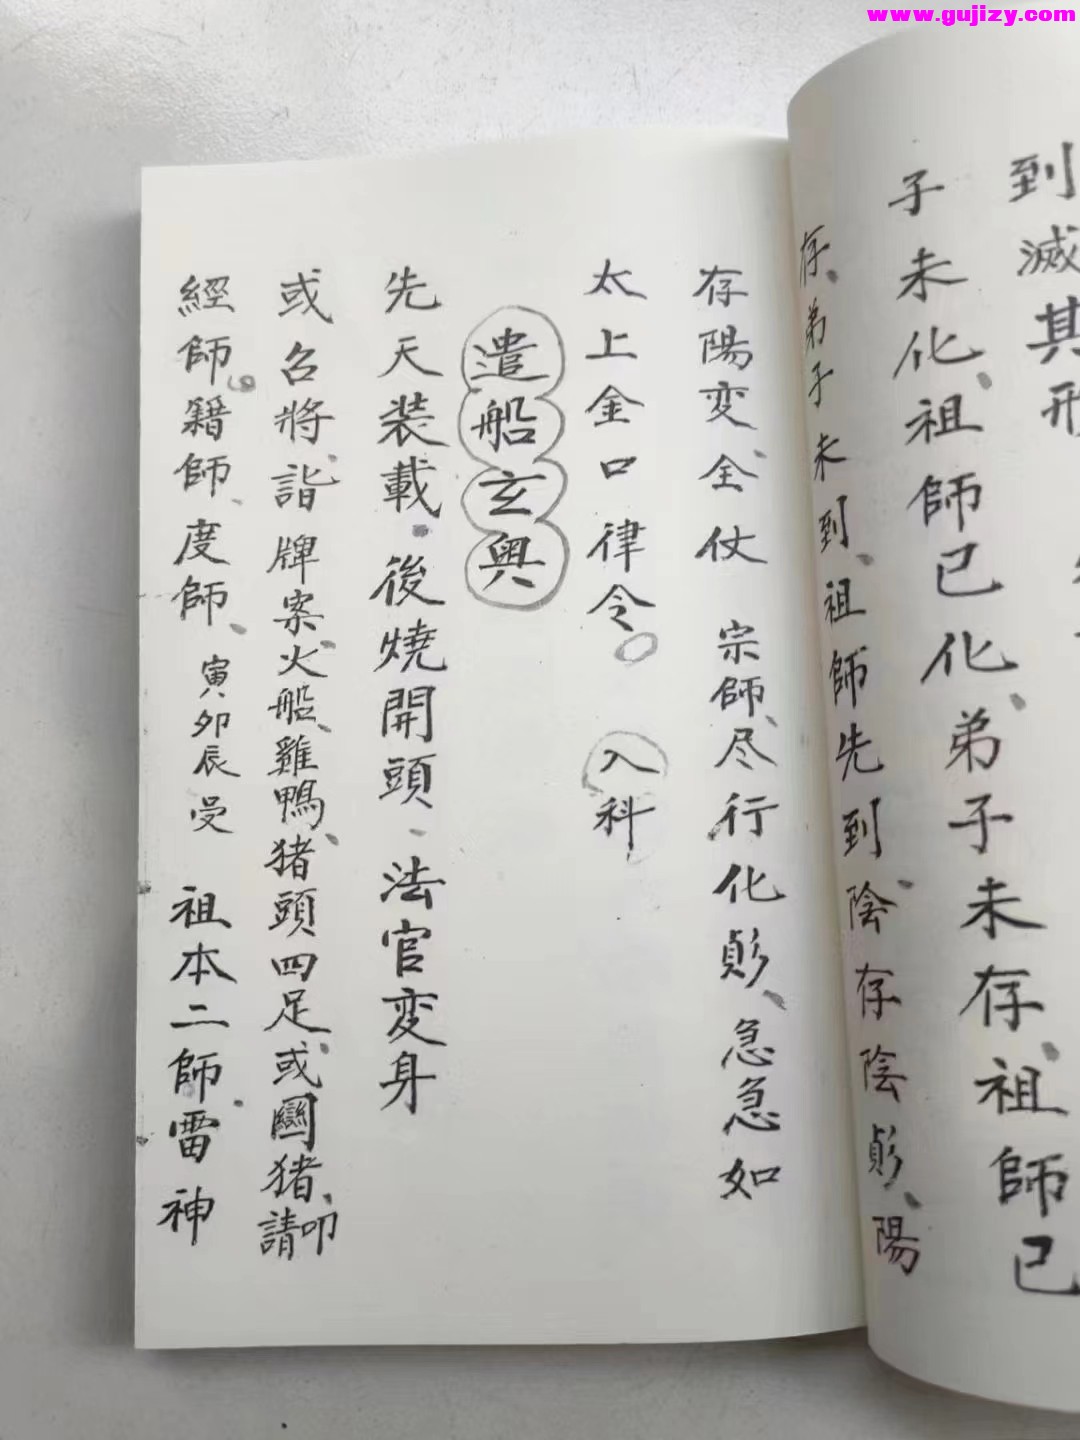 www.gujizy.com
到滅其形
子未化、祖師已化、弟子未存、祖師已
存、弟子未到、祖師先到、陰存陰㒵、陽
存陽变、全仗 宗師、尽行化㒵、急急如
太上金口律令。 入科
遣船玄奥
先天装載、後燒開頭、法官变身
或召將、詣牌案、火船、雞鴨、猪頭四足、或圞猪、叩請
經師、籍師、度師、寅卯辰受 祖本二師、雷神